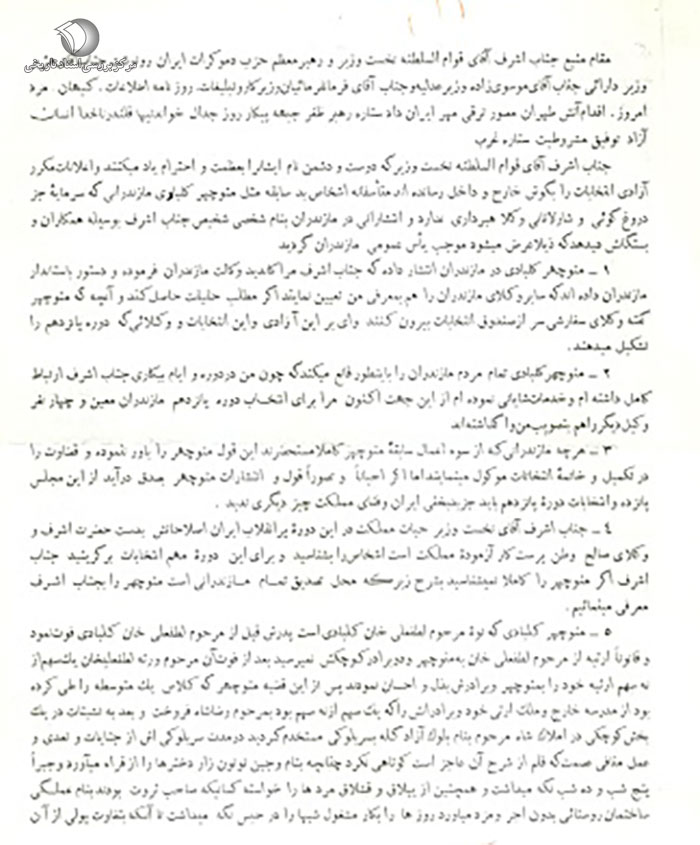 مرکز بررسی اسناد تاریخی
مقام منیع جناب اشرف آقای قوام السلطنه نخست وزیر و رهبر معظم حزب دموکرات ایران رو
وزیر دارائی جناب آقای موسوی زاده وزیر عدلیه و جناب آقای فرمانفرمائیان وزیر کار و تبلیغات. روزنامه اطلاعات. کیهان. مرد
امروز. اقدام. آتش طهران مصور ترقی مهر ایران داد ستاره رهبر ظفر جبهه پیکار روز جدال خواندنیها قلندر ناخدا انسانیت.
آزاد توفیق مشروطیت ستاره غرب
جناب اشرف آقای قوام السلطنه نخست وزیر که دوست و دشمن نام ایشانرا بعظمت و احترام یاد میکنند و اعلانات مکرر
آزادی انتخابات را بگوش خارج و داخل رسانده اند متأسفانه اشخاص بد سابقه مثل منوچهر کلبادی مازندرانی که سرمایهٔ جز
دروغ گوئی و شارلاتانی و کلا هبرداری ندارد و انتشاراتی در مازندران بنام شخص شخیص جناب اشرف بوسیله همکاران و
بستگانش میدهد که ذیلا عرض میشود موجب یأس عمومی مازندران گردید
۱ ـ منوچهر کلبادی در مازندران انتشار داده که جناب اشرف مرا کاندید وکالت مازندران فرموده و دستور باستاندار
مازندران داده اند که سایر وکلای مازندران را هم بمعرفی من تعیین نمایند اگر مطلب حقیقت حاصل کند و آنچه که منوچهر
گفته وکلای سفارشی سر از صندوق انتخابات بیرون کنند وای بر این آزادی و این انتخابات و وکلائی که دوره پانزدهم را
تشکیل میدهند.
۲ ـ منوچهر کلبادی تمام مردم مازندران را باینطور قانع میکند که چون من در دوره و ایام بیکاری جناب اشرف ارتباط
کامل داشته ام و خدمات شایانی نموده ام از این جهت اکنون مرا برای انتخاب دوره پانزدهم مازندران معین و چهار نفر
وکیل دیگر را هم بتصویب من واگذاشته اند
۳ ـ هرچه مازندرانی که از سوء اعمال سابقهٔ منوچهر کاملا مستحضرند این قول منوچهر را باور ننموده و قضاوت را
در تکمیل و خاتمهٔ انتخابات موکول مینمایند اما اگر احیاناً و تصوراً قول و انتشارات منوچهر بصدق درآید از این مجلس
پانزده و انتخابات دورهٔ پانزدهم باید جز بدبختی ایران و فنای مملکت چیز دیگری ندید.
٤ ـ جناب اشرف آقای نخست وزیر حیات مملکت در این دورهٔ پر انقلاب ایران اصلاحاتش بدست حضرت اشرف و
وکلای صالح وطن پرست کار آزمودهٔ مملکت است اشخاص را بشناسید و برای این دورهٔ مهم انتخابات برگزینید جناب
اشرف اگر منوچهر را کاملا نمیشناسید بشرح زیر که محل تصدیق تمام مازندرانی است منوچهر را بجناب اشرف
معرفی مینمائیم.
۵ ـ منوچهر کلبادی که نوهٔ مرحوم لطفعلی خان کلبادی است پدرش قبل از مرحوم لطفعلی خان کلبادی فوت نمود
و قانوناً ارثیه از مرحوم لطفعلی خان به منوچهر و دو برادر کوچکش نمیرسید بعد از فوت آن مرحوم ورثه لطفعلیخان یک سهم از
نه سهم ارثیه خود را بمنوچهر و برادرش بذل و احسان نمودند پس از این قضیه منوچهر که کلاس یک متوسطه را طی کرده
بود از مدرسه خارج و ملک ارثی خود و برادرانش را که یک سهم از نه سهم بود بمرحوم رضاشاه فروخت و بعد به تشبثات در یک
بخش کوچکی در املاک شاه مرحوم بنام بلوک آزاد گله بسر بلوکی مستخدم گردید در مدت سربلوکی اش از جنایات و تعدی و
عمل منافی عفت که قلم از شرح آن عاجز است کوتاهی نکرد چنانچه بنام وجین توتون زار دخترها را از قراء میآورد و جبراً
پنج شب و ده شب نگه میداشت و همچنین از ییلاق و قشلاق مردها را خواسته کسانیکه صاحب ثروت بودند بنام عملگی
ساختمان روستائی بدون اجر و مزد میآورد روزها را بکار مشغول شبها را در حبس نگه میداشت تا آنکه بتفاوت پولی از آن